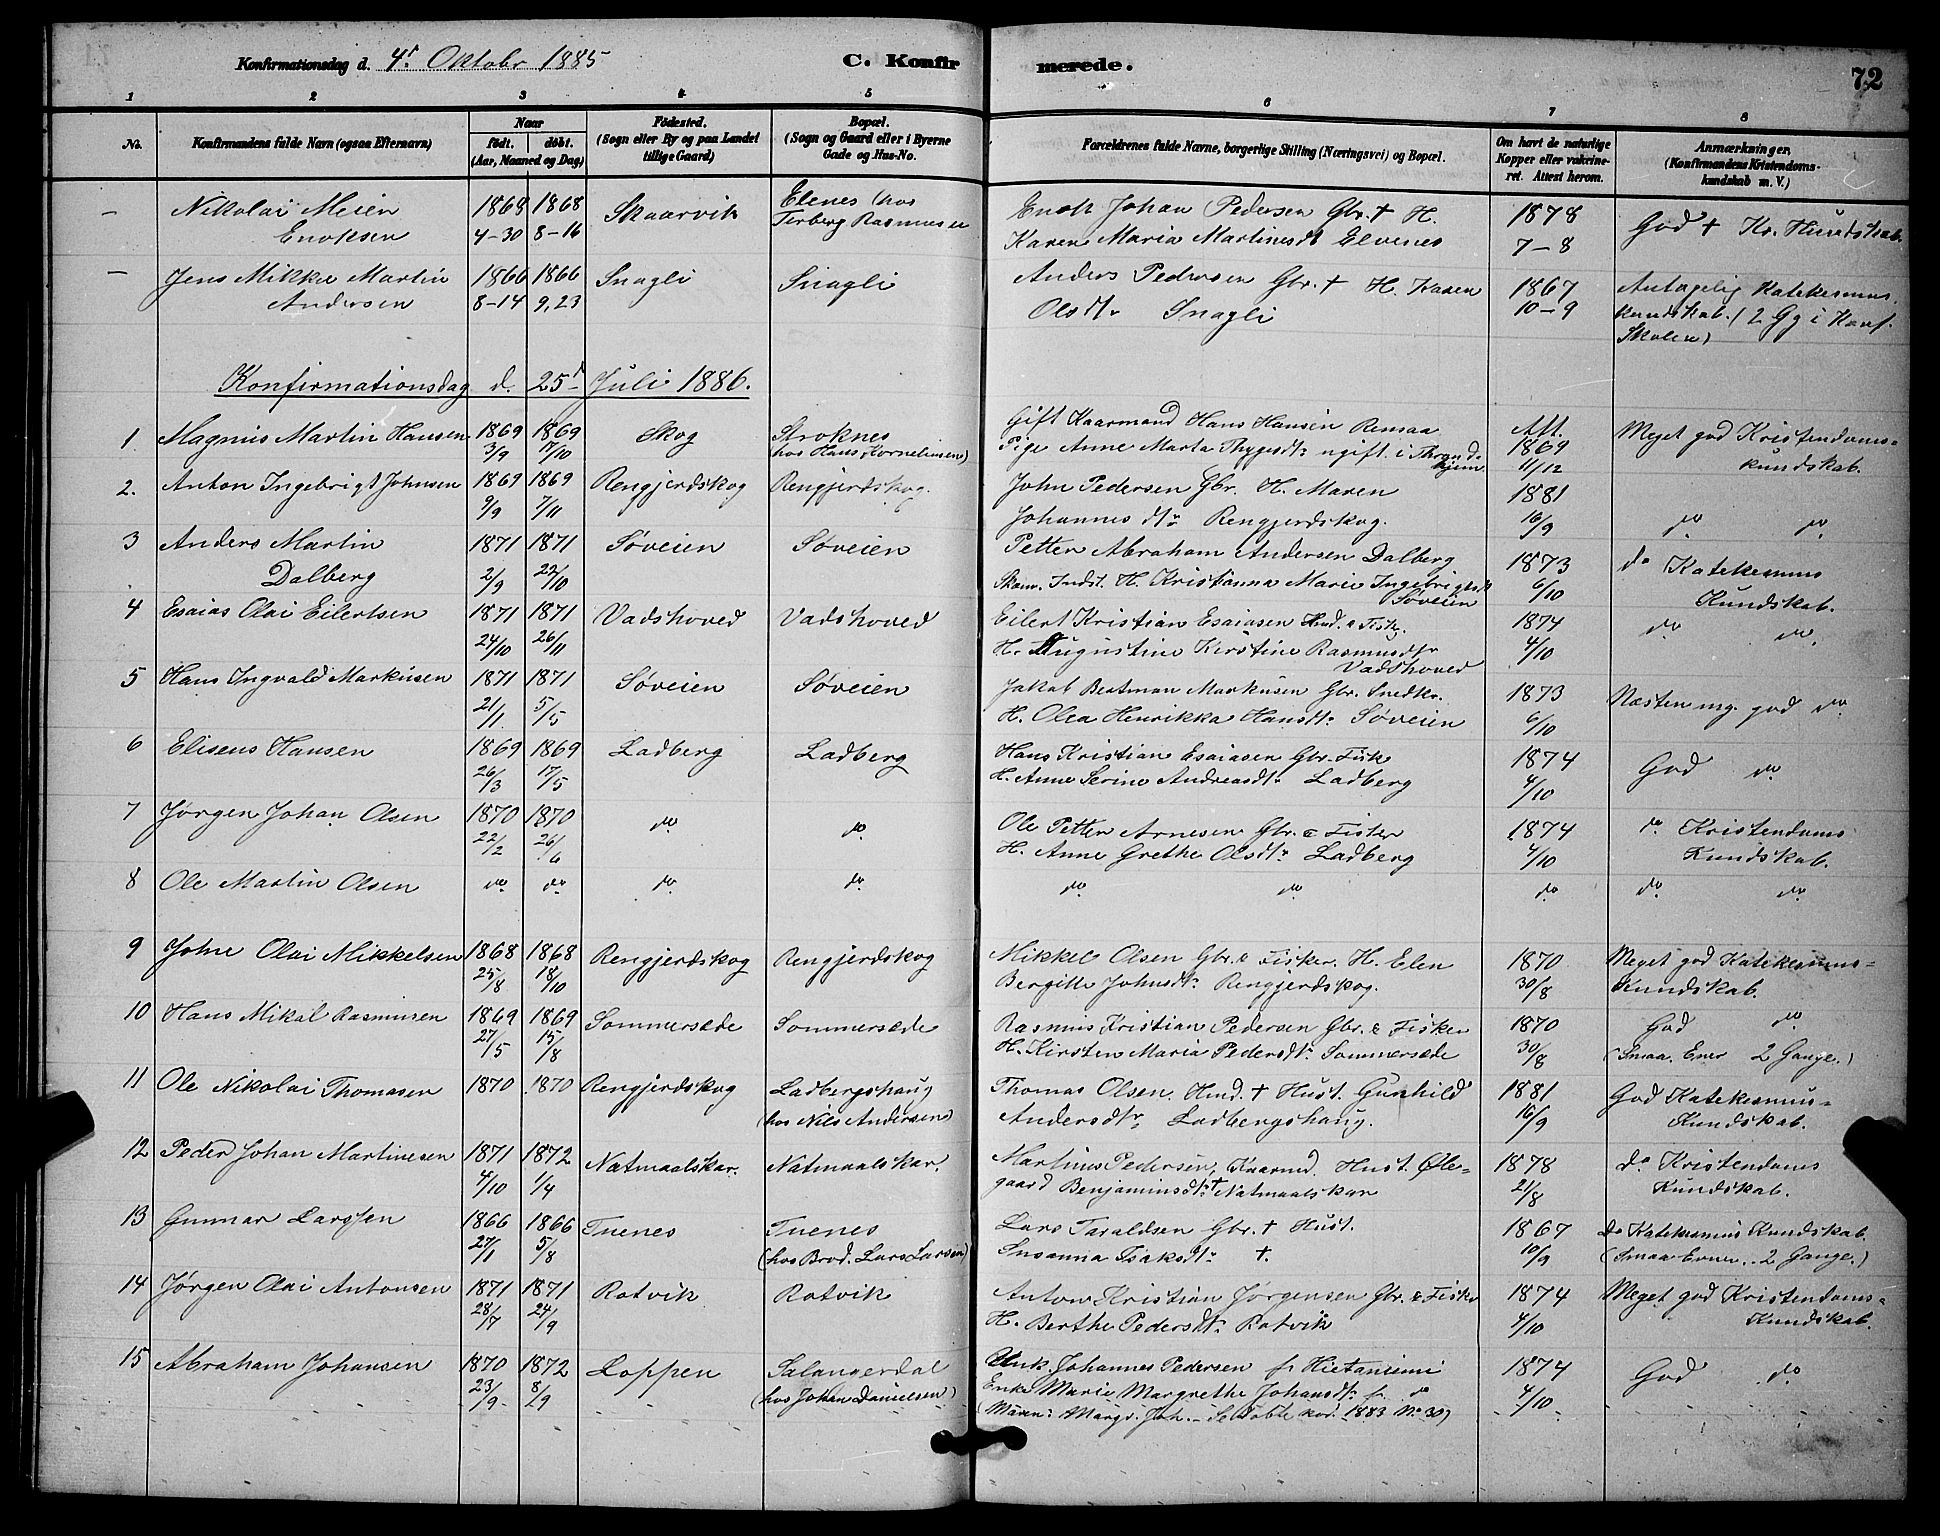 Konfirmationsdag d. 4de Oktobr 1885
C. Konfirmerede.
72
1 2 3 4 5 6 7 8
No.
Konfirmandens fulde Navn (ogsaa Efternavn)
Naar
födt. döbt.
(Aar, Maaned og Dag)
Födested.
(Sogn eller By og paa Landet
tillige Gaard)
Bopæl.
(Sogn og Gaard eller i Byerne
Gade og Hus-No.
Forældrenes fulde Navne, borgerlige Stilling (Næringsvei) og Bopæl.
Om havt de naturlige
Kopper eller vakcine-
ret. Attest herom.
Anmærkninger,
(Konfirmandens Kristendoms-
kundskab m. V.)
– Nikolai Meier 1868 1868 Skaarvik Elenes (hos Enok Johan Pedersen Gbr. + H. 1878 God + Kr. Kundskab.
Enoksen 4–30 8–16 Torberg Rasmussen Karen Maria Martinesdt Elvenes 7–8
– Jens Mikkel Martin 1866 1866 Snagli Snagli Anders Pedersen Gbr. + H. Karen 1867 Antagelig Katekesmus-
Andersen 8–14 9,23 Olsdtr Snagli 10–9 kundskab. (2 Gg i Konf.
Skolen)
Konfirmationsdag d. 25d Juli 1886.
1 Magnus Martin Hansen 1869 1869 Skog Stroknes Gift Kaarmand Hans Hansen Remaa Aft. Meget god Kristendoms-
3/9 17/10 (hos Hans Kornelinsen) Pige Anne Marta Thygesdtr ugift. i Thrond- 1869 kundskab.
hjem 11/12
2. Anton Ingebrigt Johnsen 1869 1869 Rengjerdskog Rengjerdskog. John Pedersen Gbr. H. Maren 1881
9/9 7/11 Johannesdtr Rengjerdskog. 16/9 do do
3 Anders Martin 1871 1871 Søveien Søveien Petter Abraham Andersen Dalberg 1873 do Katekesmus
Dalberg 2/9 22/10 Skom. Indst. H. Kristianna Marie Ingebrigtsdt 6/10 Kundskab.
Søveien
4 Esaias Olai Eilertsen 1871 1871 Vadshoved Vadshoved Eilert Kristian Esaiasen Hmd. & Fisk. 1874 do do
24/10 26/11 H. Augustine Kirstine Rasmusdtr 4/10
Vadshoved
5 Hans Ingvald Markusen 1871 1871 Søveien Søveien Jakob Beatman Markusen Gbr. Snedkr. 1873 Næsten mg. god do
21/1 5/5 H. Olea Henrikka Hansdtr Søveien 6/10
6 Eliseus Hansen 1869 1869 Ladberg Ladberg Hans Kristian Esaiasen Gbr. Fisk 1874 God do
26/3 17/5 H. Anne Serine Andreasdtr Ladberg 4/10
7 Jørgen Johan Olsen 1870 1870 do do Ole Petter Arnesen Gbr. & Fisker 1874 do Kristendoms
22/2 26/6 H. Anne Grethe Olsdtr Ladberg 4/10 Kundskab.
8 Ole Martin Olsen do do do do do do do do do
9 Johne Olai Mikkelsen 1868 1868 Rengjerdskog Rengjerdskog Mikkel Olsen Gbr. & Fisker. H. Elen 1870 Meget god Katekesmus-
25/8 18/10 Bergitte Johnsdtr Rengjerdskog. 30/8 Kundskab.
10 Hans Mikal Rasmusen 1869 1869 Sommersæde Sommersæde Rasmus Kristian Pedersen Gbr. & Fisker 1870 God do
27/5 15/8 H. Kirsten Maria Pedersdtr Sommersæde 30/8 (Smaa Evner 2 Gange.)
11 Ole Nikolai Thomasen 1870 1870 Rengjerdskog Ladbergshaug Thomas Olsen Hmd. + Hust. Gunhild 1881 God Katekesmus-
(hos Nils Andersen) Andersdtr, Ladbergshaug. 16/9 Kundskab.
12 Peder Johan Martinesen 1871 1872 Natmaalskar. Natmaalskar. Martines Pedersen, Kaarmd. Hust. Øle- 1878 do Kristendoms
4/10 1/4 gaard Benjaminsdtr + Natmaalskar 21/8 Kundskab.
13 Gunnar Larssen 1866 1866 Tuenes Tuenes Lars Taraldsen Gbr. + Hust. 1867 do Katekesmus Kundskab
27/1 5/8 (hos Brod. Lars Larsen) Susanna Isaksdtr + 10/9 (Smaa Evner. 2 Gange.)
14 Jørgen Olai Antonsen 1871 1871 Rotvik Rotvik Anton Kristian Jørgensen Gbr. & Fisker 1874 Meget god Kristendoms-
28/7 24/9 H. Berthe Pedersdtr Rotvik 4/10 Kundskab
15 Abraham Johansen 1870 1872 Loppen Salangerdal Unk. Johannes Pedersen fr Hietaniemi 1874 God do
23/9 8/29 (hos Johan Danielsen) Enke Marie Margrethe Johansdtr fr. do 4/10
(Maren Margr. Joh. – Se Døbte kvd. 1883 No 30)